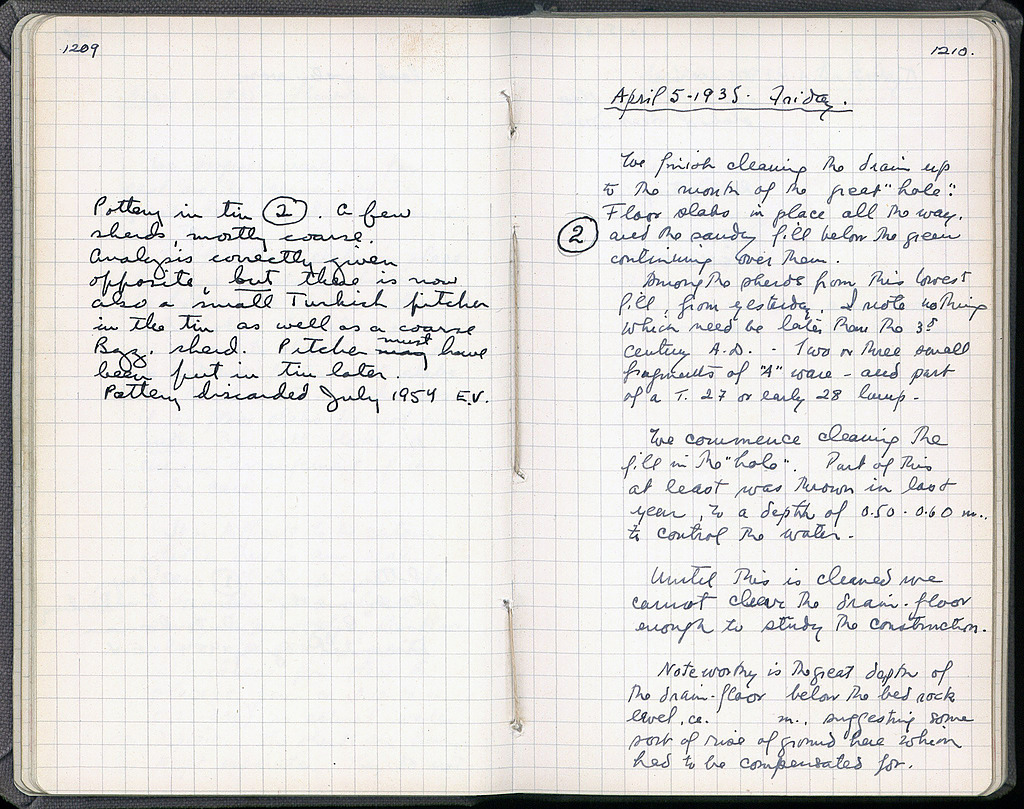 1209
Pottery in tin (2). A few
sherds, mostly coarse.
Analysis correctly given
opposite, but there is now
also a small Turkish pitcher
in the tin as well as a coarse
Byz. sherd. Pitcher may must have
been put in tin later.
Pottery discarded July 1954 E.V.
1210.
April 5-1935. Friday.
We finish cleaning the drain up
to the mouth of the great "hole".
Floor slabs in place all the way,
(2) and the sandy fill below the green
continuing over them.
Among the sherds from this lowest
fill, from yesterday, I note nothing
which need be later than the 3rd
century A.D. - Two or three small
fragments of "A" ware - and part
of a T. 27 or early 28 lamp.
We commence cleaning the
fill in the "hole". Part of this
at least was thrown in last
year, to a depth of 0.50-0.60 m.,
to control the water.
Until this is cleaned we
cannot clear the drain-floor
enough to study the construction.
Noteworthy is the great depth of
the drain-floor below the bed rock
level, ca. m., suggesting some
sort of rise of ground here which
had to be compensated for.